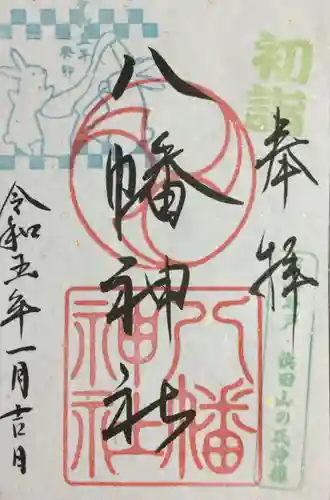 初詣
奉拝
八幡神社
八幡
神社
令和五年一月吉日
癸卯
浜田山の氏神様